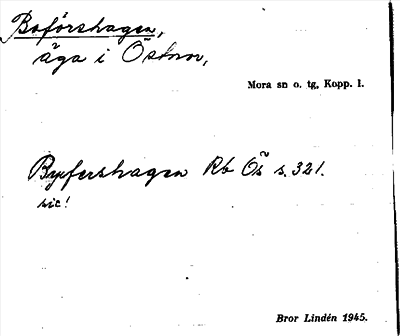 Boförshagen,
äga i Östnor,
Mora sn o. tg, Kopp. l.
Byfershagen Rb Ös s. 321.
sic!
Bror Lindén 1945.